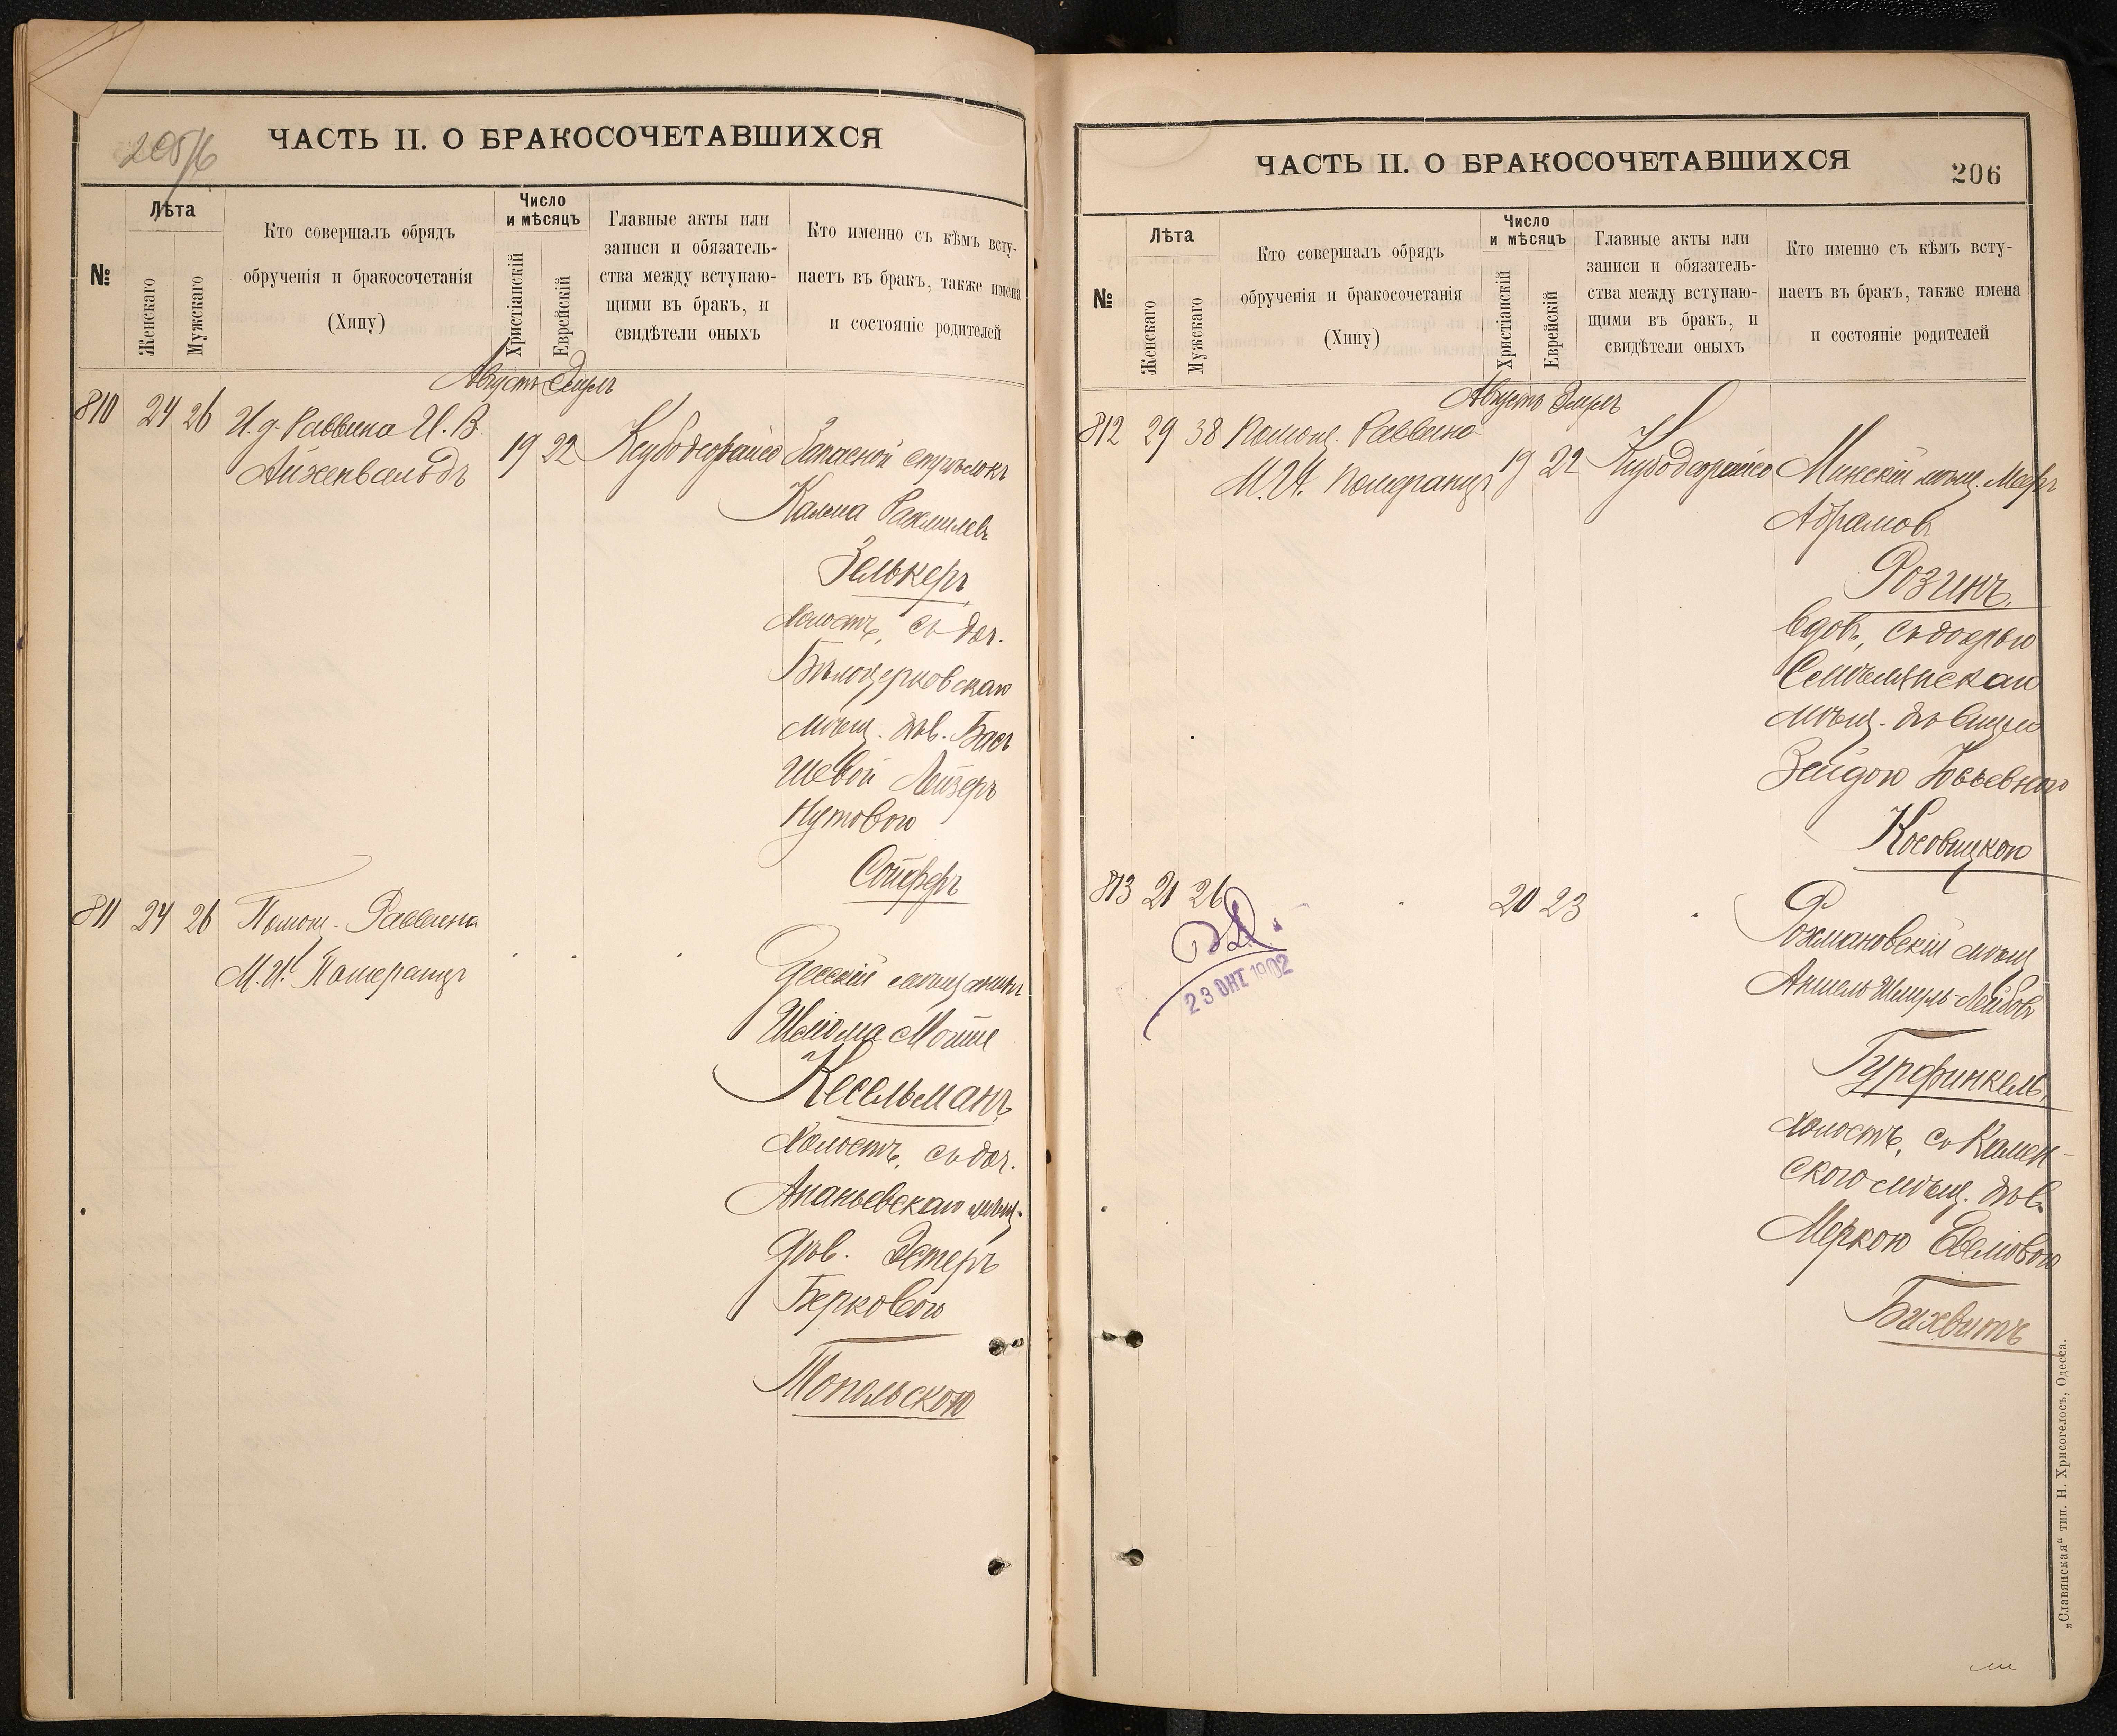 205/6
ЧАСТЬ II. О БРАКОСОЧЕТАВШИХСЯ
№
Лѣта
Женскаго
Мужскаго
Кто совершалъ обрядъ
обрученія и бракосочетанія
(Хипу)
Число
и мѣсяцъ
Христіанскій
Еврейскій
Главные акты или
записи и обязатель-
ства между вступаю-
щими въ бракъ, и
свидѣтели оныхъ
Кто именно съ кѣмъ всту-
паетъ въ бракъ, также имена
и состояніе родителей
Августъ Элулъ
810 24 26 И. д. Раввина И. В.
Айхенвальдъ
19 22
Запасной стрѣлокъ
Кальма Рахмилевъ
Зелькеръ,
холостъ, съ доч.
Бѣлоцерковскаго
мѣщ. дѣв. Бась
Шевой Лейзеръ
Нутовою
Сойферъ
811 24 26 Помощ. Раввина
М. И. Померанцъ
Одесскій мѣщанинъ
Шлёма Мойше
Кесельманъ,
холостъ, съ доч.
Ананьевскаго мѣщ.
дѣв. Эстеръ
Берковою
Топольскою
ЧАСТЬ II. О БРАКОСОЧЕТАВШИХСЯ
206
№
Лѣта
Женскаго
Мужскаго
Кто совершалъ обрядъ
обрученія и бракосочетанія
(Хипу)
Число
и мѣсяцъ
Христіанскій
Еврейскій
Главные акты или
записи и обязатель-
ства между вступаю-
щими въ бракъ, и
свидѣтели оныхъ
Кто именно съ кѣмъ всту-
паетъ въ бракъ, также имена
и состояніе родителей
Августъ Элулъ
812 29 38 Помощ. Раввина
М. И. Померанцъ
19 22
Минскій мѣщ. Мееръ
Абрамовъ
Розинъ,
вдов., съ дочерью
мѣщ. дѣвицею
Зейдою
Косовицкою
813 21 26
20 23
23 ОКТ 1902
Рожмановскій мѣщ
Аншель Шмуль-Лейбовъ
Гурфинкель,
холостъ, съ Камен-
ского мѣщ. дѣв.
Меркою
Бихвитъ
„Славянская“ тип. Н. Хрисогелосъ, Одесса.